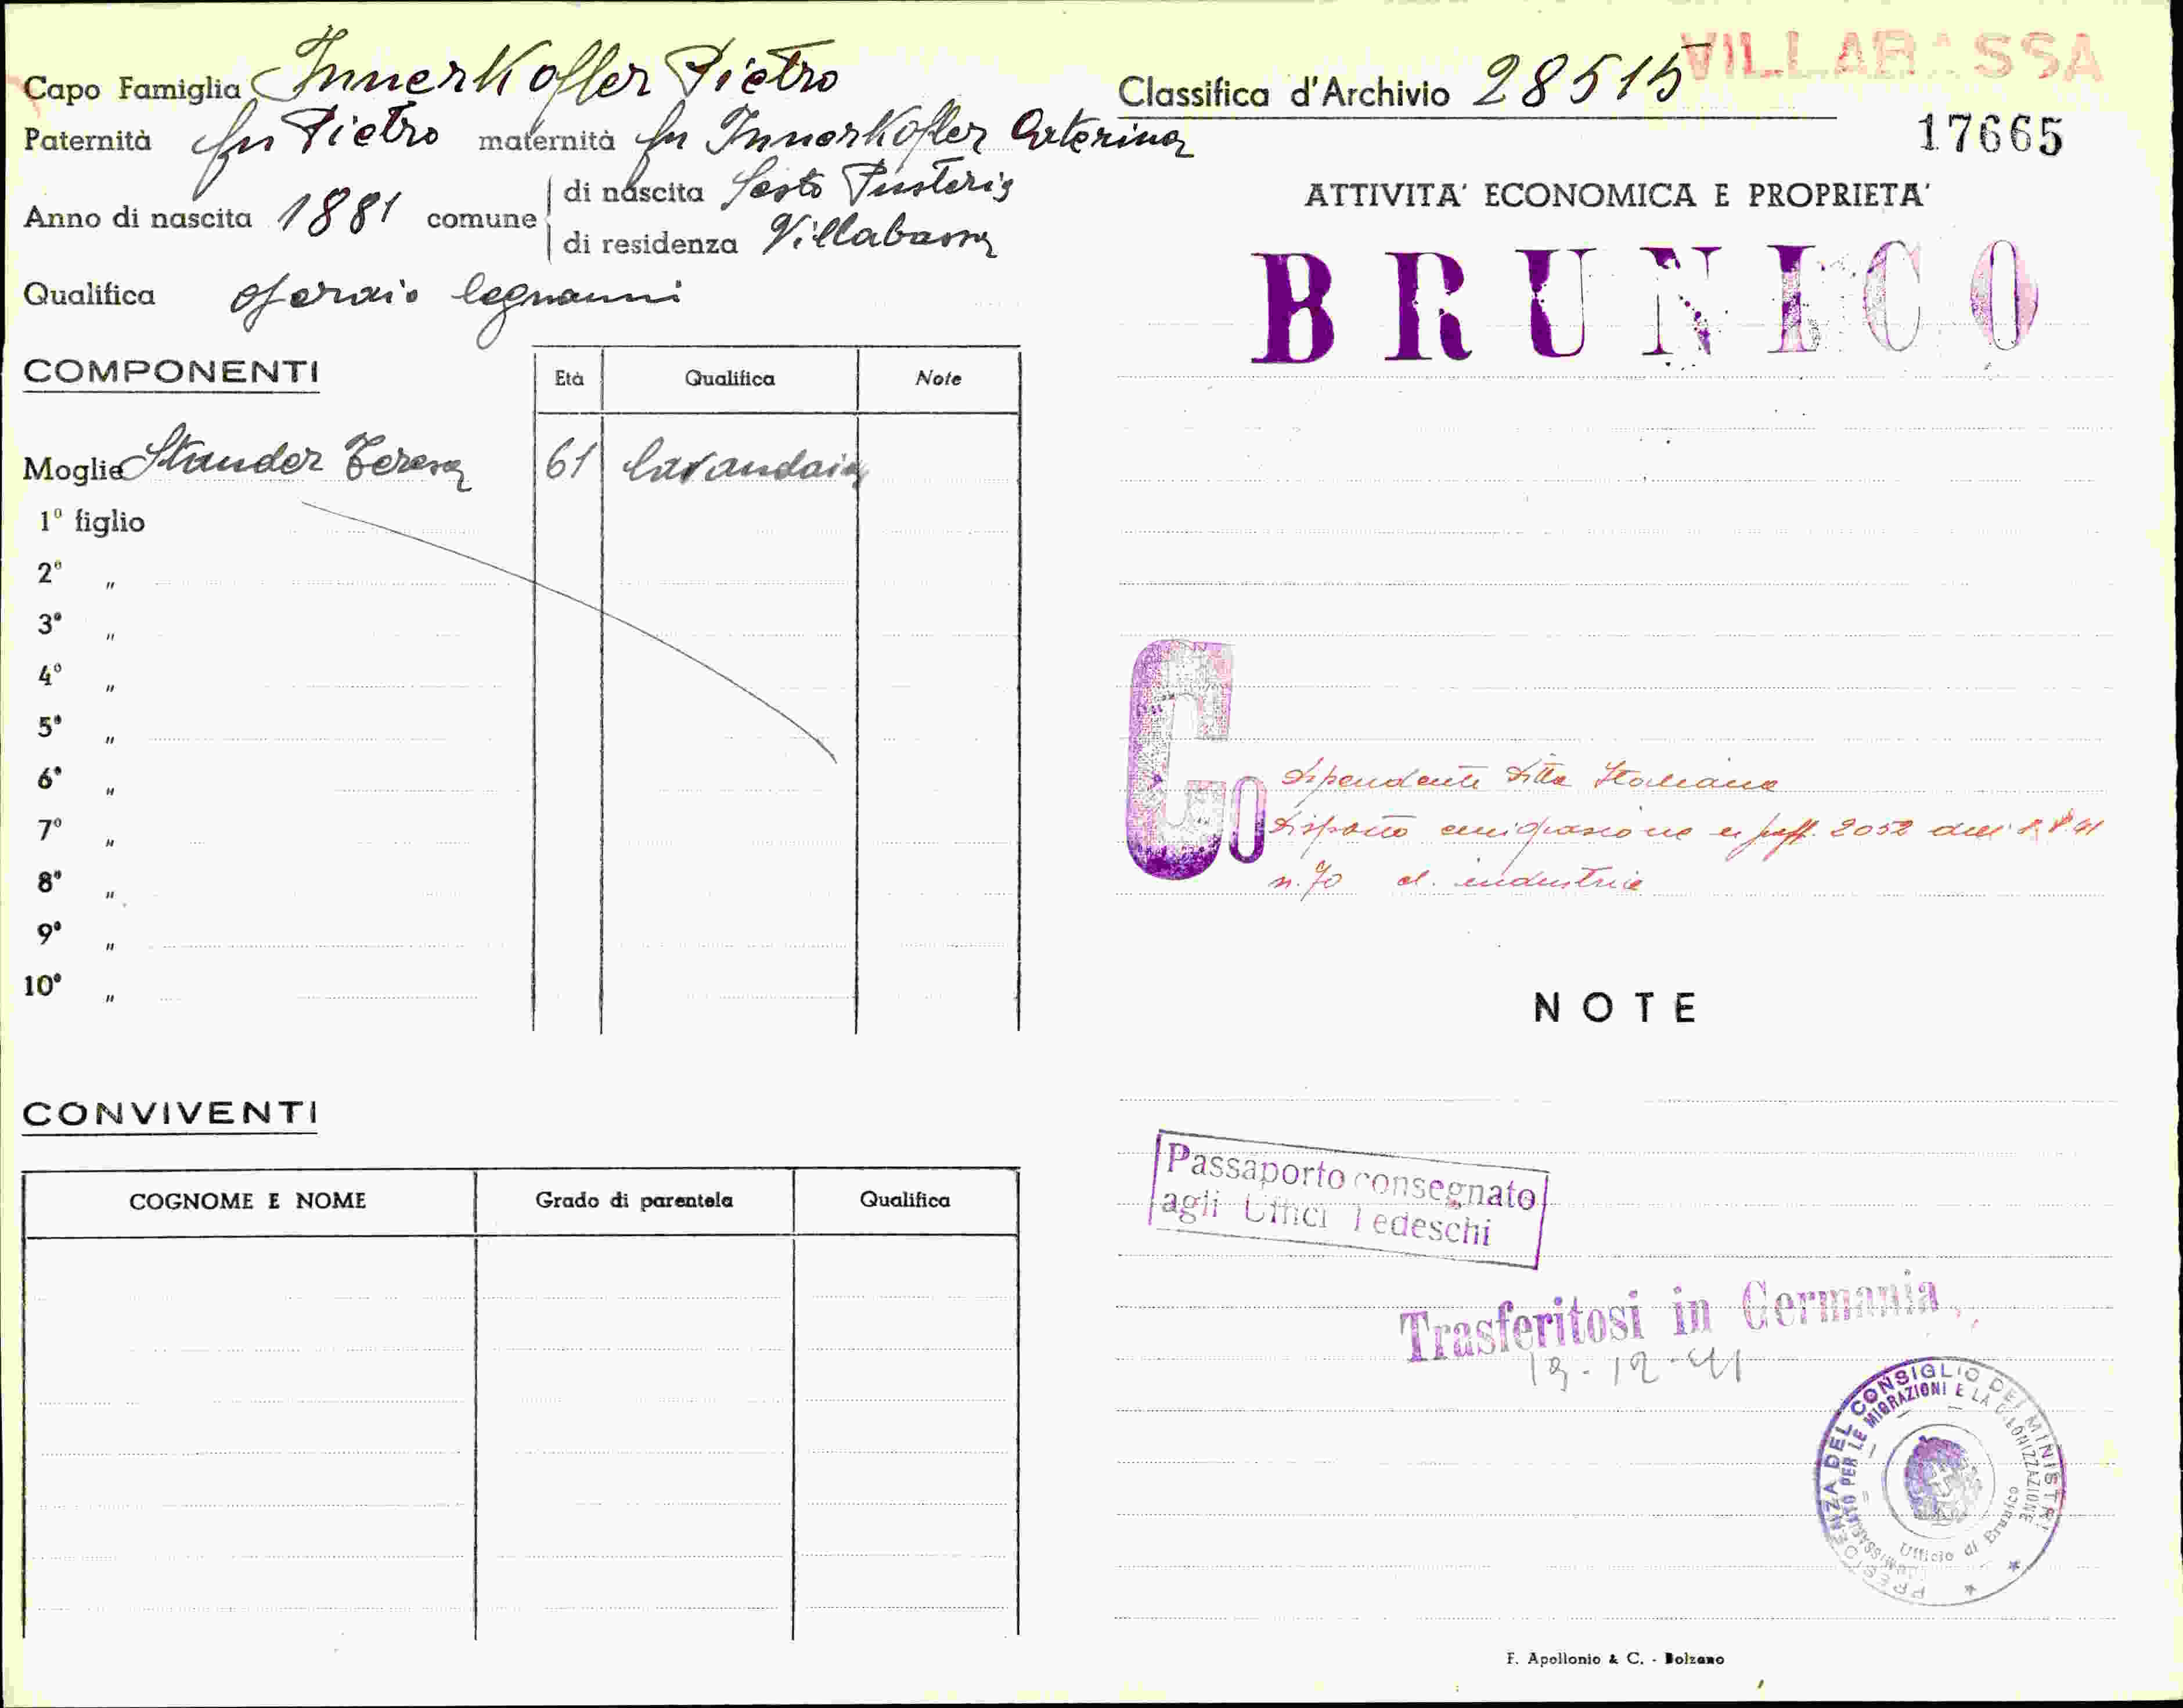 Capo Famiglia Innerkofler Pietro
Paternità fu Pietro maternità fu Innerkofler Caterina
Anno di nascita 1881 comune
di nascita Sesto Pusteria
di residenza Villabassa
Qualifica operaio legnami
COMPONENTI
Età Qualifica Note
Moglie Stauder Teresa 61 lavandaia
1° figlio
2° "
3° "
4° "
5° "
6° "
7° "
8° "
9° "
10° "
CONVIVENTI
COGNOME E NOME Grado di parentela Qualifica
VILLABASSA
Classifica d'Archivio 28515
17665
ATTIVITA' ECONOMICA E PROPRIETA'
BRUNICO
Co
dipendente ditta Italiana
disposto emigrazione 2052 41
n. 70 d. industria
NOTE
Passaporto consegnato
agli Uffici Tedeschi
Trasferitosi in Germania
19-12-41
PRESIDENZA DEL CONSIGLIO DEI MINISTRI
COMMISSARIATO PER LE MIGRAZIONI E LA COLONIZZAZIONE
Ufficio di Brunico
F. Apollonio & C. - Bolzano